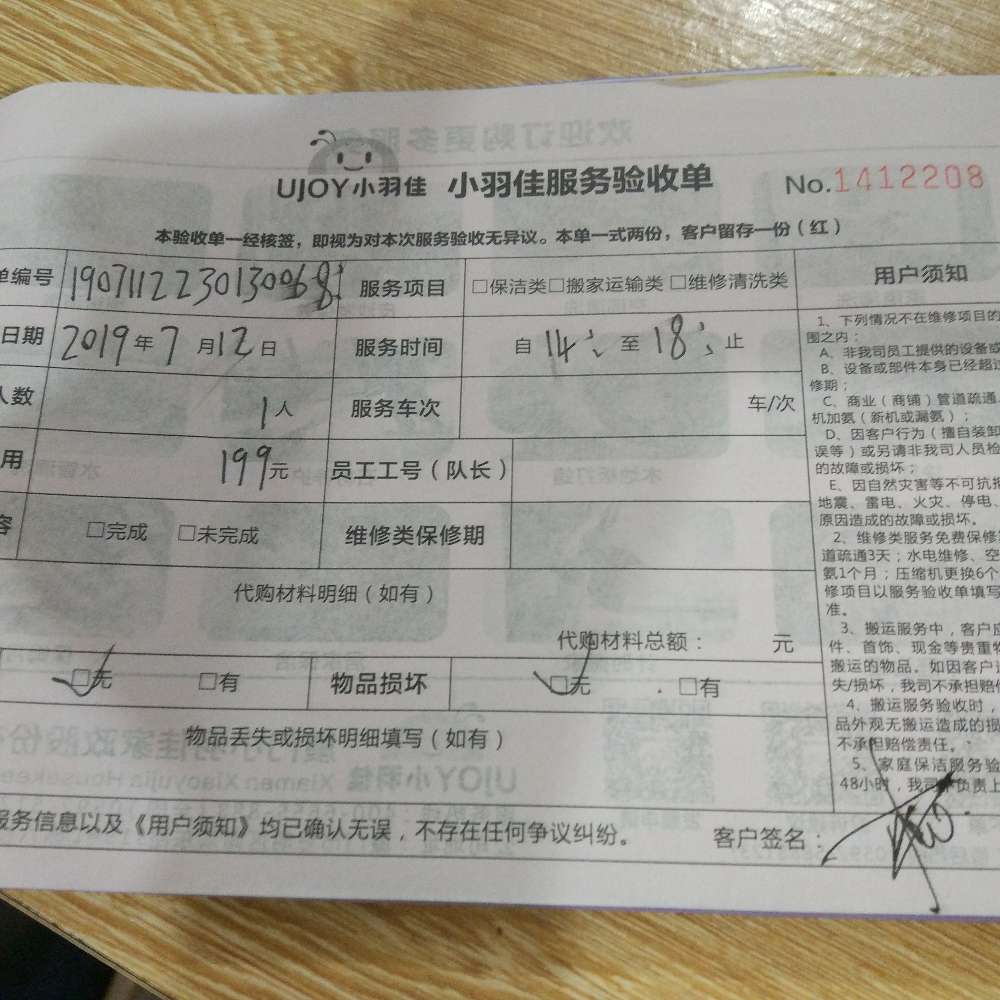 UJOY小羽佳 小羽佳服务验收单 No.1412208
本验收单一经核签，即视为对本次服务验收无异议。本单一式两份，客户留存一份（红）
单编号 服务项目 □保洁类□搬家运输类 □维修清洗类 用户须知
日期 2019年7月12日 服务时间 自 14: 至 18: 止
人数 1人 服务车次 车/次
用 199元 员工工号（队长）
容 □完成 □未完成 维修类保修期
代购材料明细（如有）
代购材料总额： 元
□无 □有 物品损坏 □无 □有
物品丢失或损坏明细填写（如有）
服务信息以及《用户须知》均已确认无误，不存在任何争议纠纷。 客户签名：
1、下列情况不在维修项目的
围之内：
A、非我司员工提供的设备或
B、设备或部件本身已经超过
修期；
C、商业（商铺）管道疏通、
机加氨（新机或漏氨）；
D、因客户行为（擅自装卸
误等）或另请非我司人员检
的故障或损坏；
E、因自然灾害等不可抗
地震、雷电、火灾、停电、
原因造成的故障或损坏。
2、维修类服务免费保修
道疏通3天；水电维修、空
氨1个月；压缩机更换6个
修项目以服务验收单填写
准。
3、搬运服务中，客户应
件、首饰、现金等贵重物
搬运的物品。如因客户
失/损坏，我司不承担赔偿
4、搬运服务验收时，
品外观无搬运造成的损
不承担赔偿责任。
5、家庭保洁服务验
48小时，我司不负责上